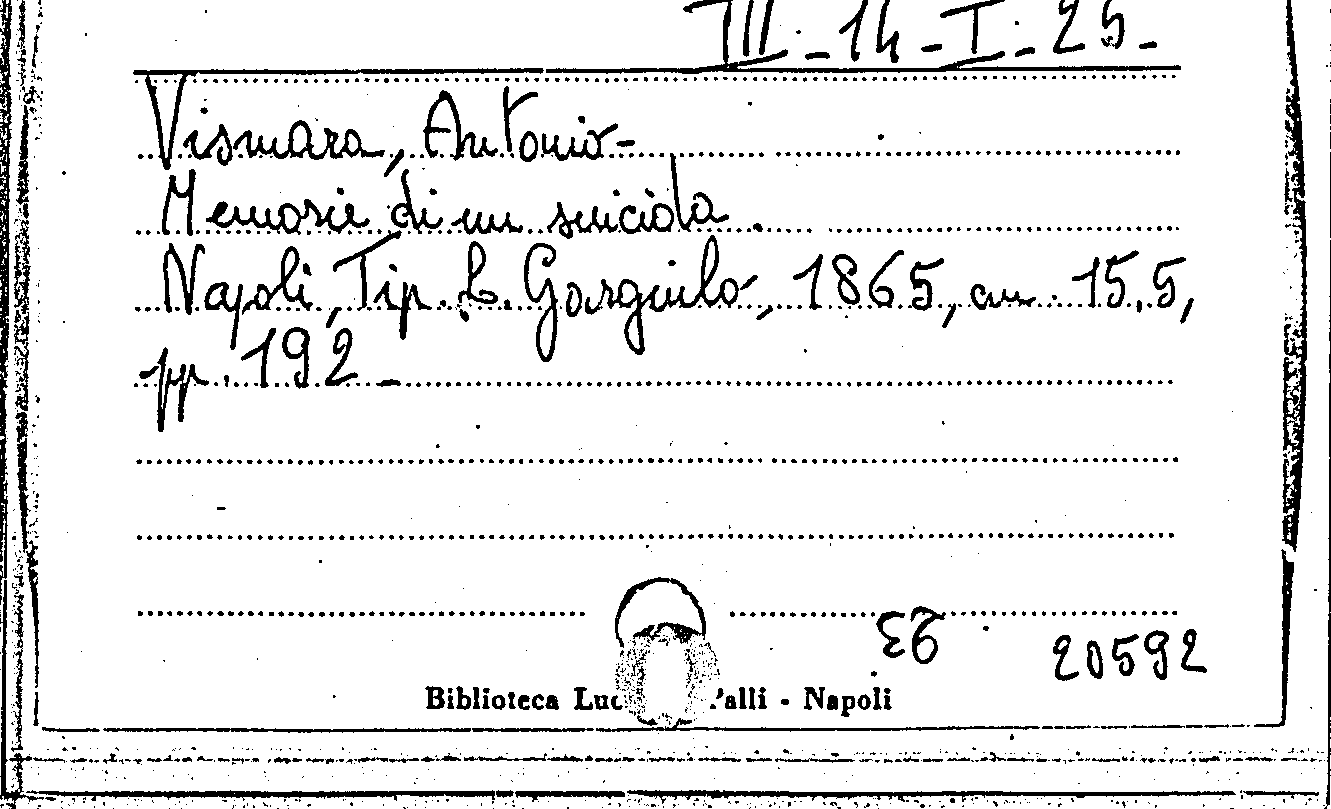 III - 14 - I - 25 -
Vismara, Antonio-
Memorie di un suicida.
Napoli, Tip. L. Gargiulo, 1865, cm. 15,5,
pp. 192 -
20592
Biblioteca - Napoli